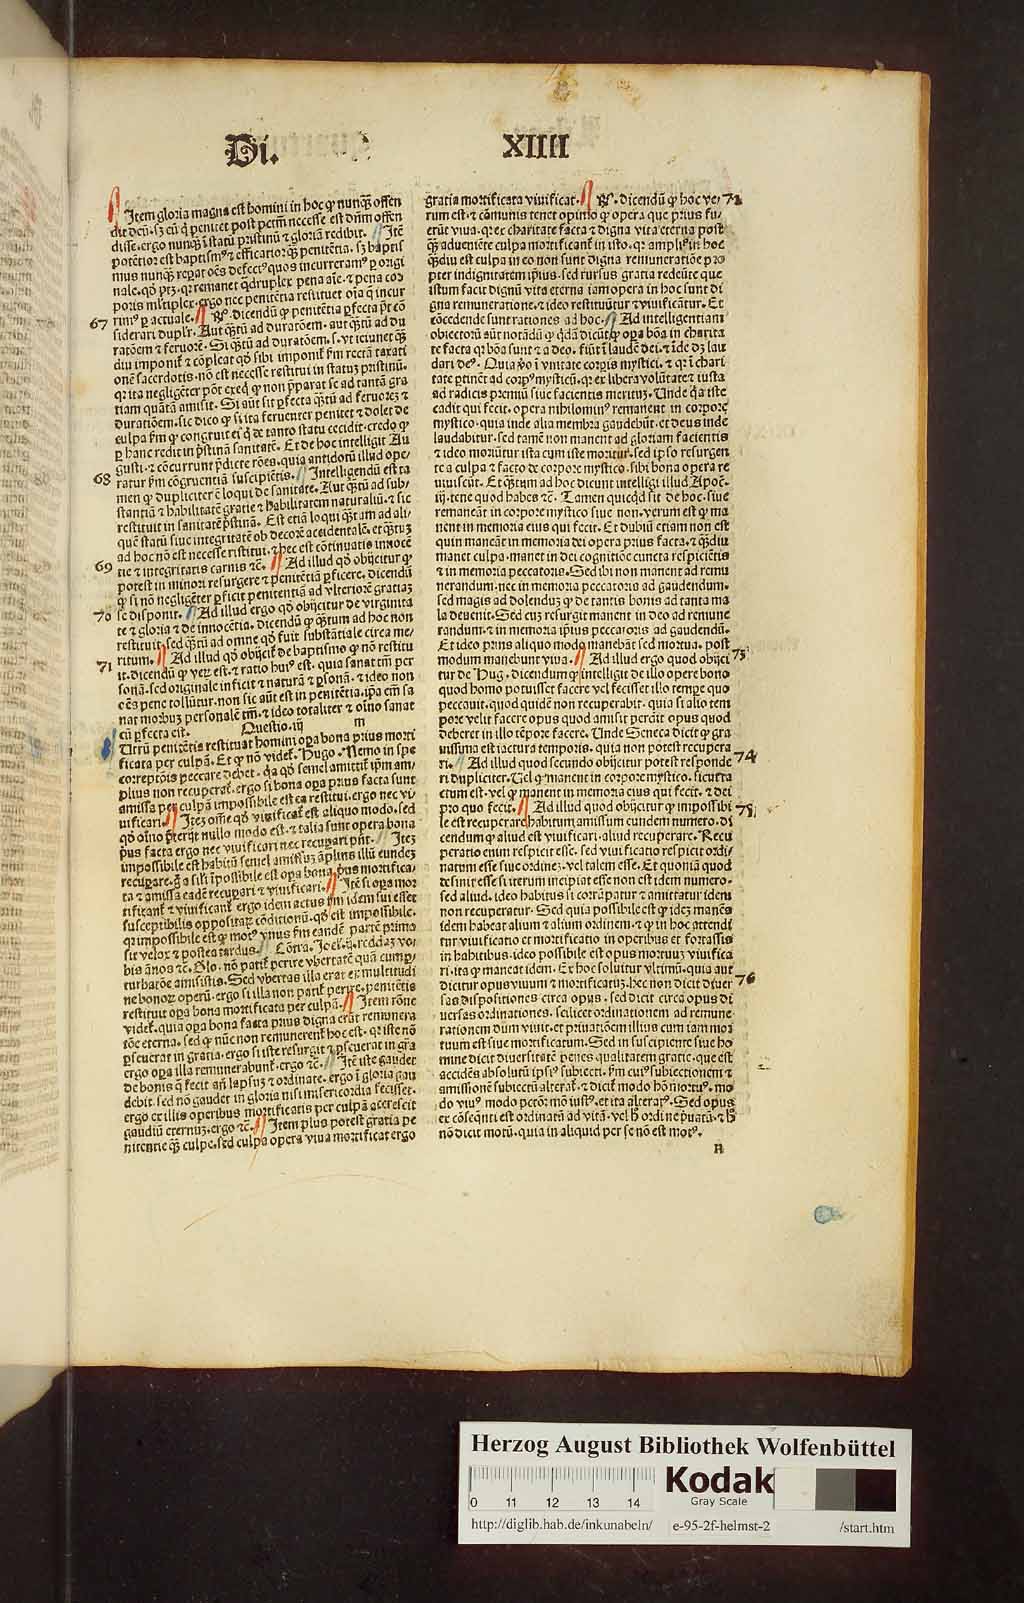 Di. XIIII
Item gloria magna est homini in hoc ꝙ nunqͣ offen
dit deū. sꝫ cū ꝗ penitet post pctm̄ necesse est dn̄m offen
disse. ergo nunqͣ ī statū pristinū ⁊ gloriā redibit. Itē
potētior est baptismꝰ ⁊ efficatior qͣ penitētia. sꝫ baptis
mus nunqͣ reꝑat oēs defectꝰ quos incurreramꝰ ꝑ origi
nale. qd̓ ptꝫ. qꝛ remanet q̄druplex pena aīe. ⁊ pena cor
poris mltiplex. ergo nec penitētia restituet oīa q̄ incur
67 rimꝰ ꝑ actuale. Rͦ. dicendū ꝙ penitētia ꝑfecta pōt cō
siderari duplr̄. Aut qͣtū ad duratōem. aut qͣtū ad du
ratōem ⁊ feruorē. Si qͣtū ad duratōem. s. vt ieiunet qͣ
diu imponit̄ ⁊ cōpleat qd̓ sibi imponit̄ ẜm rectā taxati
onē sacerdotis. nō est necesse restitui in statuꝫ pristinū.
qꝛ ita negligēter pōt exeq̄ ꝙ non p̄parat se ad tantā gra
tiam quātā amisit. Si aūt sit ꝑfecta qͣtū ad feruorēꝫ ⁊
duratōem. sic dico ꝙ si ita feruenter penitet ⁊ dolet de
culpa ẜm ꝙ congruit ei q̄ de tanto statu cecidit. credo ꝙ
ꝑ hanc redit in p̄stinā sanitatē. Et de hoc intelligit Au
gusti. ⁊ cōcurrunt p̄dicte rōes. quia antidotū illud ope
68 ratur ẜm cōgruentiā suscipiētis. Intelligendū est ta
men ꝙ dupliciter ē loqui de sanitate. Aut qͣtū ad sub
stantiā ⁊ habilitatē gratie ⁊ habilitatem naturaliū. ⁊ sic
restituit in sanitatē p̄stinā. Est etiā loqui qͣtum ad ali
quē statū siue integritatē ob decorē accidentalē. et qͣtuꝫ
ad hoc nō est necesse restitui. ⁊ hec est cōtinuatis innocē
69 tie ⁊ integritatis carnis ⁊c̄. Ad illud qd̓ obijcitur ꝙ
potest in minori resurgere ⁊ penitētiā ꝑficere. dicendū
ꝙ si nō negligēter ꝑficit penitentiā ad vlteriorē gratiaꝫ
70 se disponit. Ad illud ergo qd̓ obijcitur de virginita
te ⁊ gloria ⁊ de innocētia. dicendū ꝙ qͣtum ad hoc non
restituit. sed qͣtū ad omne qd̓ fuit substātiale circa me
71 ritum. Ad illud qd̓ obijcit̄ de baptismo ꝙ nō restitu
it. dicendū ꝙ verꝫ est. ⁊ ratio huiꝰ est. quia sanat tm̄ per
sonā. sed originale inficit ⁊ naturā ⁊ ꝑsonā. ⁊ ideo non
oēs pene tolluntur. non sic aūt est in penitētia. ip̄a em̄ sa
nat morbuꝫ personalē tm̄. ⁊ ideo totaliter ⁊ oīno sanat
cū ꝑfecta est. Questio. iij
m
Utrū penitētis restituat homini oꝑa bona prius morti
ficata per culpā. Et ꝙ nō videt̄. Hugo. Nemo in spe
correptōis peccare debet. q̄a qd̓ semel amittit̄ ip̄m am
plius non recuperat̄. ergo si bona oꝑa prius facta sunt
amissa per culpā impossibile est ea restitui. ergo nec vi
uificari. Iteꝫ om̄e qd̓ viuificat̄ est aliquo modo. sed
qd̓ oīno p̄terijt nullo modo est. ⁊ talia sunt opera bona
pͥus facta ergo nec viuificari nec recuꝑari pn̄t. Iteꝫ
impossibile est habitū semel amissuꝫ amplius illū eundeꝫ
recuꝑare. g̊ a sil̄i īpossibile est oꝑa bona pͥus mortifica
ta ⁊ amissa eadē recuꝑari ⁊ viuificari. Itē si oꝑa mor
tificant̄ ⁊ viuificant̄ ergo idem actus ẜm idem sui esset
susceptibilis oppositaꝝ cōditionū. qd̓ est impossibile.
qꝛ impossibile est ꝙ motꝰ vnus ẜm eandē partē primo
sit velox ⁊ postea tardus. Cōtra. Joel. ij. reddaꝫ vo
bis ānos ⁊c̄. Glo. nō patiꝛ perire vbertatē quā cum ꝑ
turbatōe amisistis. Sed vbertas illa erat ex multitudi
ne bonoꝝ operū. ergo si illa non patit̄ perire. penitētis
restituit oꝑa bona mortificata per culpā. Item rōne
videt̄. quia oꝑa bona facta prius digna erāt remunera
tōe eterna. sed ꝙ nūc non remunerent̄ hoc est. qꝛ iste nō
ꝑseuerat in gratia. ergo si iste resurgit ⁊ ꝑseuerat in gr̄a
ergo oꝑa illa remunerabunt̄. ergo ⁊c̄. Itē iste gaudet
de bonis q̄ fecit an̄ lapsuꝫ ⁊ ordinate. ergo ī gloria gau
debit. sed nō gaudet in gloria nisi misericordia fecisset.
ergo ex illis operibus mortificatis per culpā accrescit
gaudiū eternuꝫ. ergo ⁊c̄. Item plus potest gratia pe
nitentie qͣ culpe. sed culpa opera viua mortificat ergo
gratia mortificata viuificat. Rͦ. dicendū ꝙ hoc ve 72
rum est. ⁊ cōmunis tenet opinio ꝙ opera que prius fu
erūt viua. qꝛ ex charitate facta ⁊ digna vita eterna post
qͣ adueniēte culpa mortificant̄ in isto. qꝛ ampliꝰ in hoc
qͣdiu est culpa in eo non sunt digna remuneratiōe pro
pter indignitatem ip̄ius. sed rursus gratia redeūte que
istum facit dignū vita eterna iam opera in hoc sunt di
gna remuneratione. ⁊ ideo restituūtur ⁊ viuificātur. Et
cōcedende sunt rationes ad hoc. Ad intelligentiam
obiectorū aūt notādū ꝙ q̄dā dicūt ꝙ oꝑa bōa in charita
te facta qꝛ bōa sunt ⁊ a deo. fiūt ī laudē dei. ⁊ īde dꝫ lau
dari deꝰ. Quia v̊o ī vnitate corꝑis mystici. ⁊ qꝛ ī chari
tate ꝑtinēt ad corpꝰ mysticū. qꝛ ex libera volūtate ⁊ iusta
ad radicis premiū siue facientis merituꝫ. Unde q̄a iste
cadit qui fecit. opera nihilominꝰ remanent in corpore
mystico. quia inde alia membra gaudebūt. et deus inde
laudabitur. sed tamē non manent ad gloriam facientis
⁊ ideo moriūtur ista cum iste moritur. sed ip̄so resurgen
te a culpa ⁊ facto de corpore mystico. sibi bona opera re
uiuiscūt. Et qͣtum ad hoc dicunt intelligi illud Apoc̄.
iij. tene quod habes ⁊c̄. Tamen quicqd̓ sit de hoc. siue
remaneāt in corpore mystico siue non. verum est ꝙ ma
nent in memoria eius qui fecit. Et dubiū etiam non est
quin maneāt in memoria dei opera prius facta. ⁊ qͣdiu
manet culpa. manet in dei cognitiōe cuncta respiciētis
⁊ in memoria peccatoris. Sed ibi non manent ad remu
nerandum. nec in memoria peccatoris ad gaudendum.
sed magis ad dolenduꝫ ꝙ de tantis bonis ad tanta ma
la deuenit. Sed cuꝫ resurgit manent in deo ad remune
randum. ⁊ in memoria ip̄ius peccatoris ad gaudendū.
Et ideo prius aliquo modo manebāt sed mortua. post
modum manebunt viua. Ad illud ergo quod obijci 73
tur de Hug. dicendum ꝙ intelligit de illo opere bono
quod homo potuisset facere vel fecisset illo tempꝛe quo
peccauit. quod quidē non recuperabit. quia si alio tem
pore velit facere opus quod amisit perdit opus quod
deberet in illo tēpore facere. Unde Seneca dicit ꝙ gra
uissima est iactura temporis. quia non potest recupera
ri. Ad illud quod secundo obijcitur potest responde 74
ri dupliciter. Uel ꝙ manent in corpore mystico. sicut ta
ctum est. vel ꝙ manent in memoria eius qui fecit. ⁊ dei
pro quo fecit. Ad illud quod obijcitur ꝙ impossibi 75
le est recuperare habitum amissum eundem numero. di
cendum ꝙ aliud est viuificari. aliud recuperare. Recu
peratio enim respicit esse. sed viuificatio respicit ordi
natum esse siue ordinēꝫ. vel talem esse. Et quoniā quod
desinit esse si iterum incipiat esse non est idem numero.
sed aliud. ideo habitus si corrūpatur ⁊ amittatur idem
non recuperatur. Sed quia possibile est ꝙ ideꝫ manēs
idem habeat alium ⁊ alium ordinem. ⁊ ꝙ in hoc attendi
tur viuificatio et mortificatio in operibus et fortassis
in habitibus. ideo possibile est opus mortuuꝫ viuifica
ri. ita ꝙ maneat idem. Ex hoc soluitur vltimū. quia aut
dicitur opus viuum ⁊ mortificatuꝫ. hec non dicit diuer 76
sas dispositiones circa opus. sed dicit circa opus di
uersas ordinationes. scilicet ordinationem ad remune
rationem dum viuit. et priuatiōem illius cum iam mor
tuum est siue mortificatum. Sed in suscipiente siue ho
mine dicit diuersitatē penes qualitatem gratie. que est
accidēs absolutū ip̄sꝰ subiecti. ẜm cuiꝰ subiectionem ⁊
amissionē subiectū alterat̄. ⁊ dicit̄ modo hō mortuꝰ. mo
do viuꝰ. modo pctōr. mō iustꝰ. et ita alteratꝰ. Sed opus
ex cōseq̄nti est ordinatū ad vitā. vel hͦ ordine pͥuatū. ⁊ hͦ
nō dicit motū. quia in aliquid per se nō est motꝰ.
n
Herzog August Bibliothek Wolfenbüttel
Kodak
Gray Scale
0 11 12 13 14
http://diglib.hab.de/inkunabeln/ e-95-2f-helmst-2 /start.htm